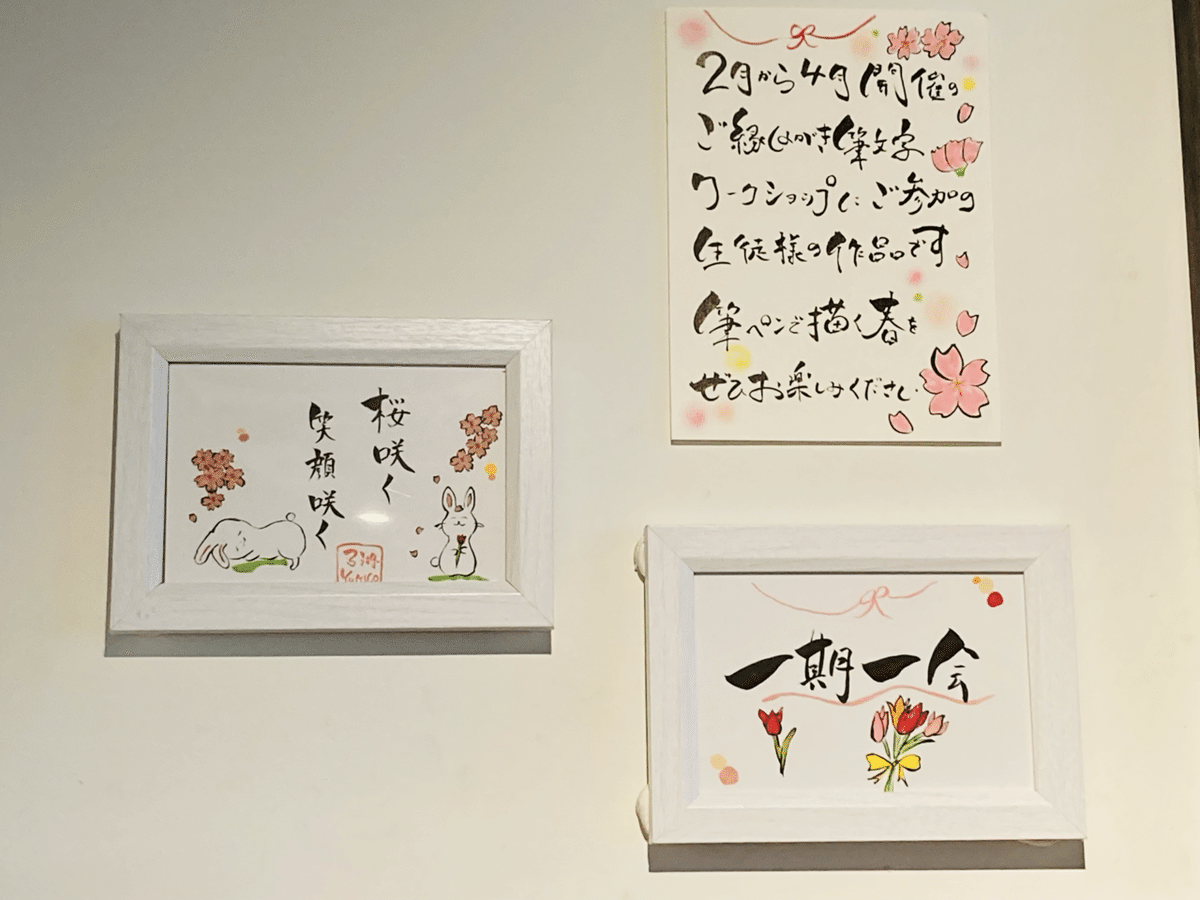 2月から4月開催の
ご縁はがき筆文字
ワークショップにご参加の
生徒様の作品です
筆ペンで描く春を
ぜひお楽しみください
桜咲く
笑顔咲く
一期一会